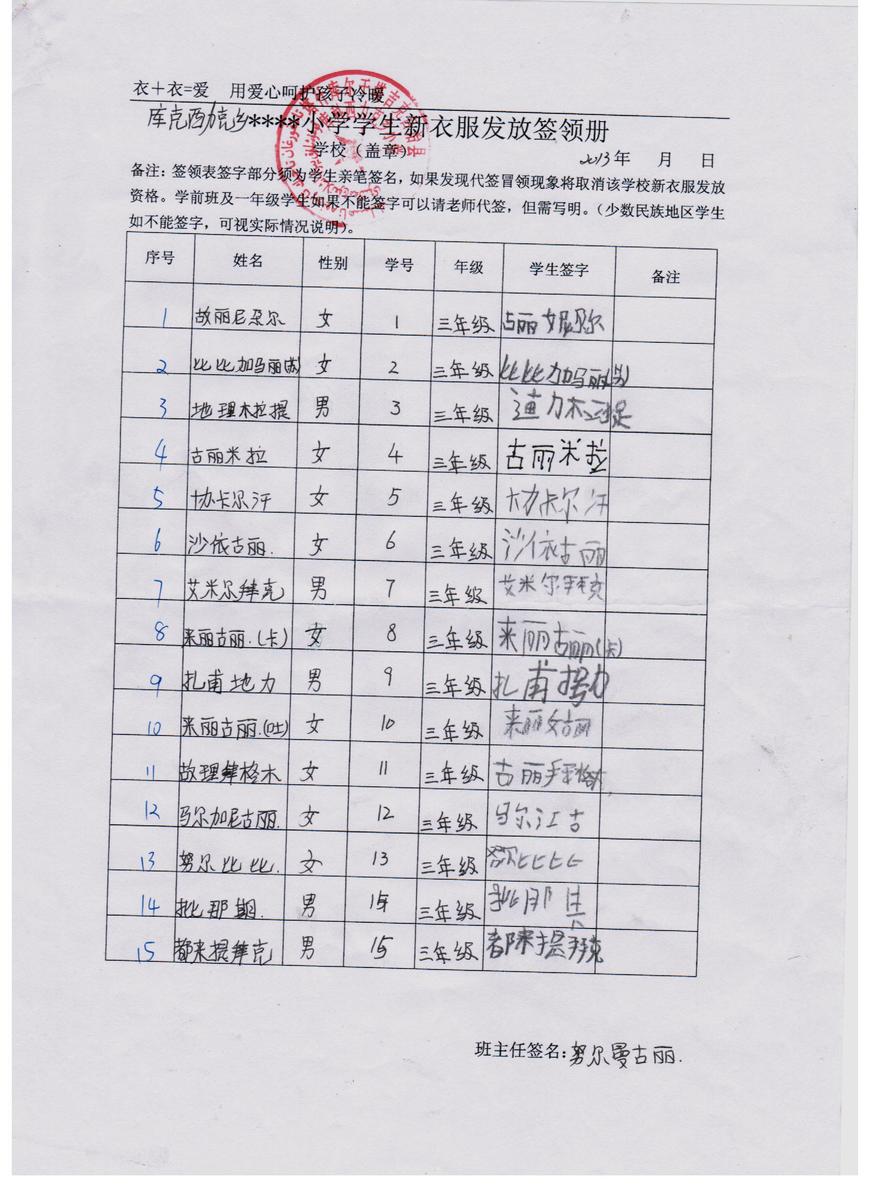 衣＋衣=爱 用爱心呵护孩子冷暖
库克西加克乡****小学学生新衣服发放签领册
学校（盖章） 2013年 月 日
备注：签领表签字部分须为学生亲笔签名，如果发现代签冒领现象将取消该学校新衣服发放
资格。学前班及一年级学生如果不能签字可以请老师代签，但需写明。（少数民族地区学生
如不能签字，可视实际情况说明）。
序号 姓名 性别 学号 年级 学生签字 备注
1 故丽尼朵尔 女 1 三年级
2 比比加玛丽 女 2 三年级 比比加玛丽
3 地理木拉提 男 3 三年级
4 古丽米拉 女 4 三年级 古丽米拉
5 协卡尔汗 女 5 三年级 卡尔汗
6 沙依古丽. 女 6 三年级 沙依古丽
7 艾米尔拜克 男 7 三年级 艾米尔
8 来丽古丽.(卡) 女 8 三年级 来丽古丽(卡)
9 扎甫地力 男 9 三年级 扎甫
10 来丽古丽. 女 10 三年级 来丽古丽
11 故理拜格木 女 11 三年级 古丽
12 马尔加尼古丽. 女 12 三年级 马尔江古
13 努尔比比. 女 13 三年级 比比
14 批那期. 男 三年级 批那
15 都来提拜克 男 15 三年级 都来提拜克
班主任签名:努尔曼古丽.